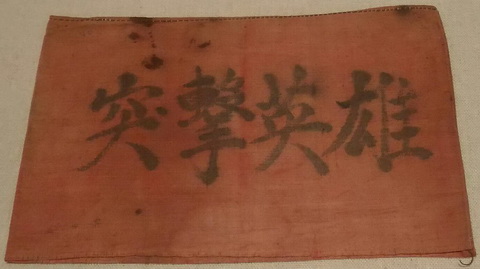 突擊英雄